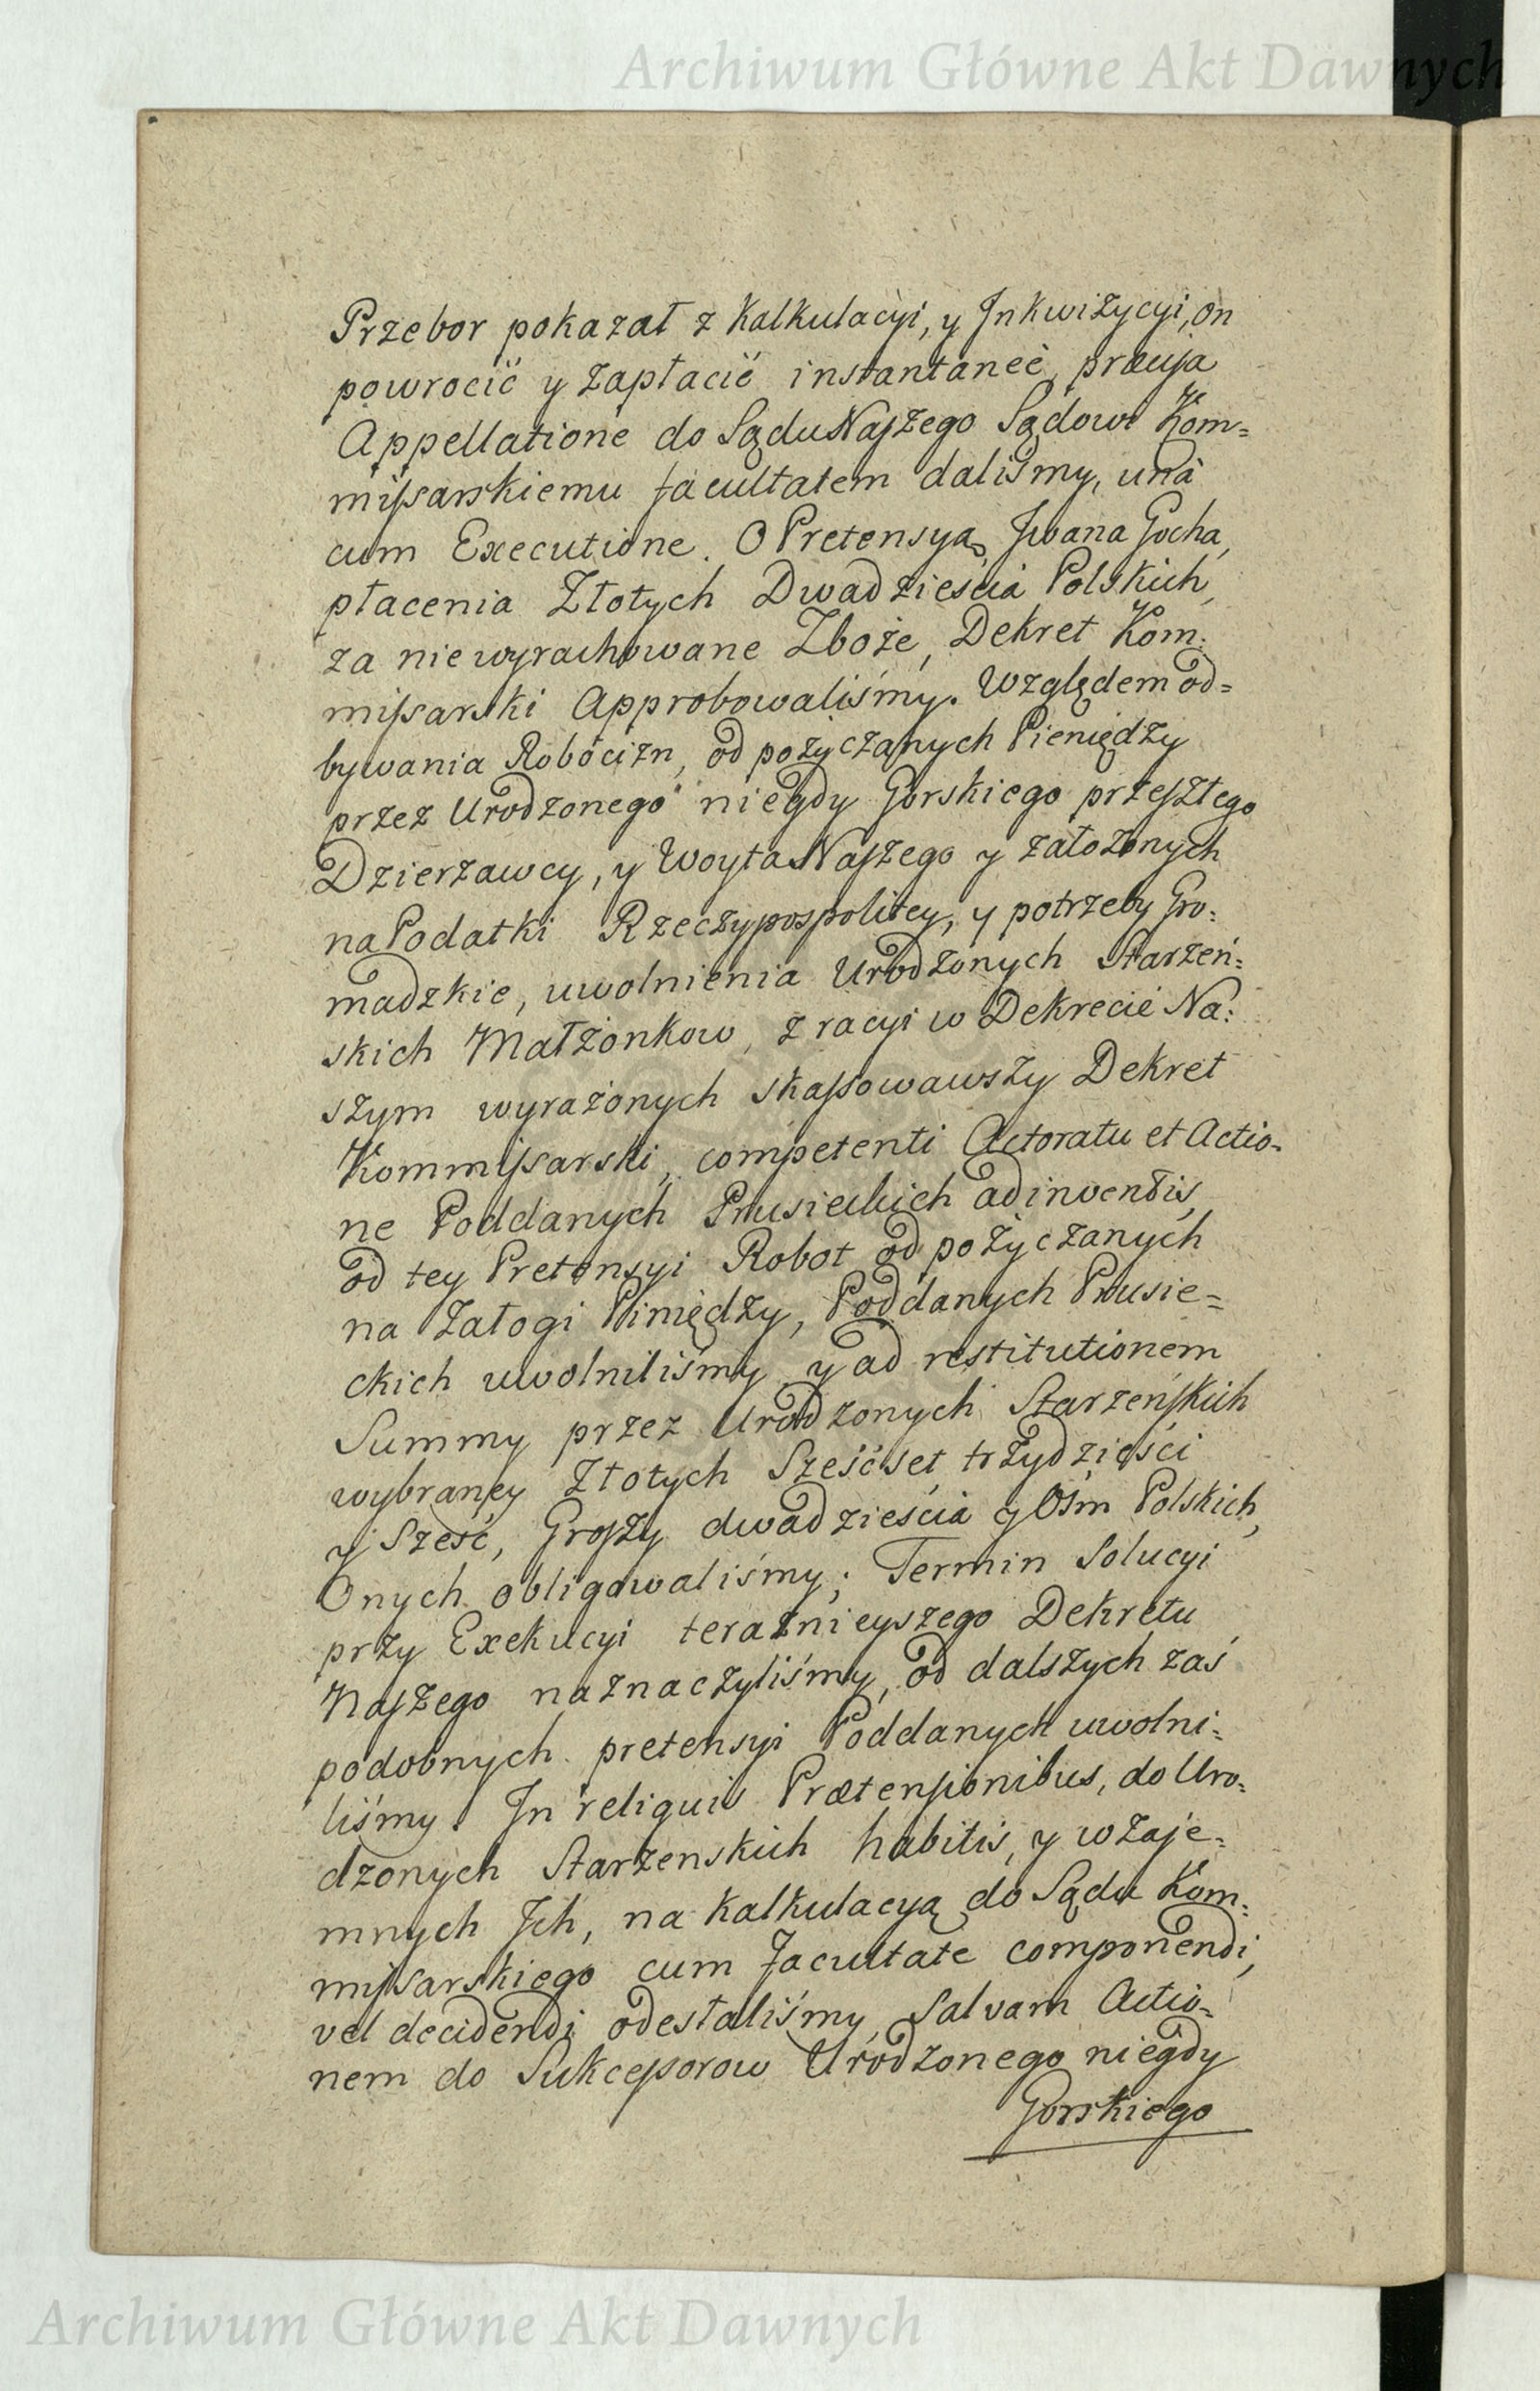 Archiwum Główne Akt Dawnych
Przebor pokazał z Kalkulacyi, y Inkwizycyi, on
powrocić y zapłacić instantaneè, præcisa
Appellatione do Sądu Naszego Sądowi Kom=
missarskiemu facultatem daliśmy, unà
cum Executione. O Pretensyą Iwana Gocha,
płacenia Złotych Dwadzieścia Polskich,
za nie wyrachowane Zboże, Dekret Kom:
missarski Approbowaliśmy. Względem od=
bywania Robocizn, od pożyczanych Pieniędzy
przez Urodzonego niegdy Gorskiego przeszłego
Dzierzawcy, y Woyta Naszego y założonych
na Podatki Rzeczypospolitey, y potrzeby Gro:
madzkie, uwolnienia Urodzonych Starzeń:
skich Małżonkow, z racyi w Dekrecie Na:
szym wyrażonych skassowawszy Dekret
Kommissarski, competenti Actoratu et Actio-
ne Poddanych Prusieckich adinventis,
od tey Pretensyi Robot od pożyczanych
na Załogi Piniędzy, Poddanych Prusie=
ckich uwolniliśmy, y ad restitutionem
Summy przez Urodzonych Starzeńskich
wybraney Złotych Sześćset trzydzieści
y Sześć, Groszy dwadzieścia y Ośm Polskich,
Onych obligowaliśmy; Termin Solucyi
przy Exekucyi teraznieyszego Dekretu
Naszego naznaczyliśmy, od dalszych zaś
podobnych pretensyi Poddanych uwolni:
liśmy. In reliquis Prætensionibus, do Uro:
dzonych Starzenskich habitis, y wzaje:
mnych Ich, na Kalkulacyą do Sądu Kom:
missarskiego cum facultate componendi,
vel decidendi odesłaliśmy, Salvam Actio:
nem do Sukcessorow Urodzonego niegdy
Gorskiego
Archiwum Główne Akt Dawnych